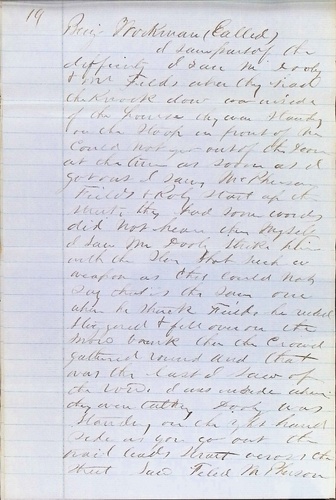 19
Benj Workman (Called)
I saw part of the
difficulty I saw Mr Dooly
& Mr Fields when they had
the knock down
of the House they was standing
on the Stoop in front of the
Could not get out of the Door
at the time as soon as I
got out I saw McPherson
Fields & Roly Start up the
Street they had some words
did not hear them myself
I saw Mr Dooly Strike him
with the
weapon as that could not
Say that is the same one
when he Struck Fields he
Staggered & fell over on the
Snow bank then the Crowd
gathered round and that
was the last I saw of
the I was inside when
they were talking Dooly was
Standing on the right hand
Side as you go out the
leads Strait across the
Street Saw Field McPherson